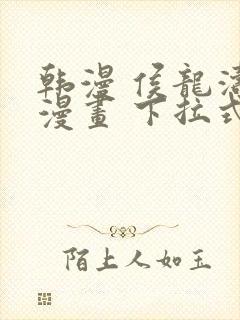 韩漫 侯龍濤
漫畫 下拉式
陌上人如玉